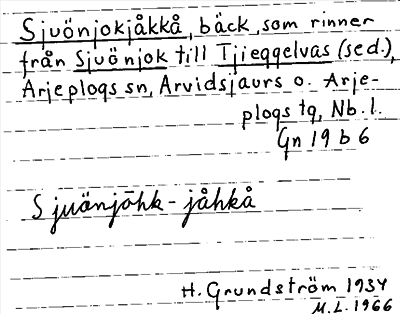 Sjuönjokjåkkå, bäck, som rinner
från Sjuönjok till Tjieggelvas (se d.),
Arjeplogs sn, Arvidsjaurs o. Arje-
plogs tg, Nb. l.
Gn 19 b 6
Sjuänjōhk-jåhkå
H. Grundström 1934
M.L. 1966